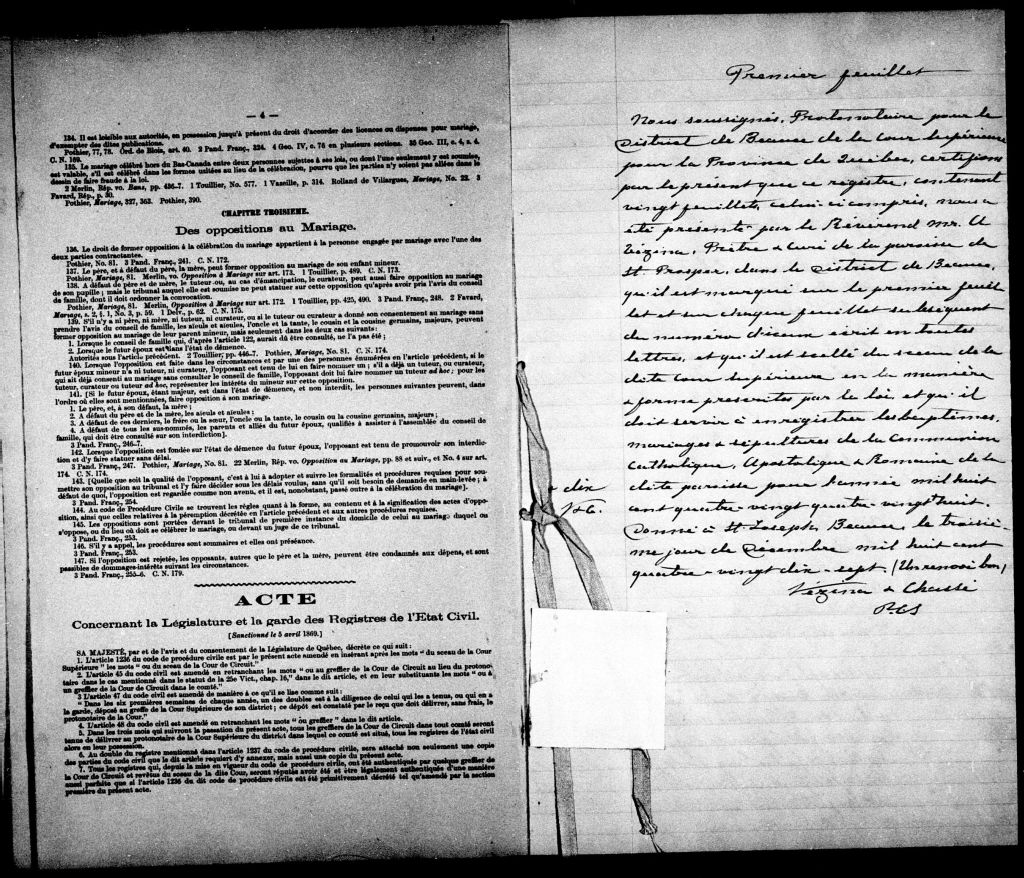 — 4 —
134. Il est loisible aux autorités, en possession jusqu'à présent du droit d'accorder des licences ou dispenses pour mariage,
d'exempter des dites publications.
Pothier, 77, 78. Ord. de Blois, art. 40. 2 Pand. Franç., 324. 4 Geo. IV, c. 76 en plusieurs sections. 35 Geo. III, s. 4, s. 4.
C. N. 169.
135. Le mariage célébré hors du Bas-Canada entre deux personnes sujettes à ses lois, ou dont l'une seulement y est soumise,
est valable, s'il est célébré dans les formes usitées au lieu de la célébration, pourvu que les parties n'y soient pas allées dans le
dessein de faire fraude à la loi.
2 Merlin, Rép. vo. Bans, pp. 436-7. 1 Touillier, No. 577. 1 Vazeille, p. 314. Rolland de Villargues, Mariage, No. 23. 3
Favard, Rép., p. 50.
Pothier, Mariage, 327, 363. Pothier, 390.
CHAPITRE TROISIEME.
Des oppositions au Mariage.
136. Le droit de former opposition à la célébration du mariage appartient à la personne engagée par mariage avec l'une des
deux parties contractantes.
Pothier, No. 81. 3 Pand. Franç., 241. C. N. 172.
137. Le père, et à défaut du père, la mère, peut former opposition au mariage de son enfant mineur.
Pothier, Mariage, 81. Merlin, vo. Opposition à Mariage sur art. 173. 1 Touillier, p. 489. C. N. 173.
138. A défaut de père et de mère, le tuteur ou, au cas d'émancipation, le curateur, peut aussi faire opposition au mariage
de son pupille ; mais le tribunal auquel elle est soumise ne peut statuer sur cette opposition qu'après avoir pris l'avis du conseil
de famille, dont il doit ordonner la convocation.
Pothier, Mariage, 81. Merlin, Opposition à Mariage sur art. 172. 1 Touillier, pp. 425, 490. 3 Pand. Franç., 248. 2 Favard,
Mariage, s. 2, §. 1, No. 3, p. 59. 1 Delv., p. 62. C. N. 175.
139. S'il n'y a ni père, ni mère, ni tuteur, ni curateur, ou si le tuteur ou curateur a donné son consentement au mariage sans
prendre l'avis du conseil de famille, les aïeuls et aïeules, l'oncle et la tante, le cousin et la cousine germains, majeurs, peuvent
former opposition au mariage de leur parent mineur, mais seulement dans les deux cas suivants :
1. Lorsque le conseil de famille qui, d'après l'article 122, aurait dû être consulté, ne l'a pas été ;
2. Lorsque le futur époux est dans l'état de démence.
Autorités sous l'article précédent. 2 Touillier, pp. 446-7. Pothier, Mariage, No. 81. C. N. 174.
140. Lorsque l'opposition est faite dans les circonstances et par une des personnes énumérées en l'article précédent, si le
futur époux mineur n'a ni tuteur, ni curateur, l'opposant est tenu de lui en faire nommer un ; s'il a déjà un tuteur, ou curateur,
qui ait déjà consenti au mariage sans consulter le conseil de famille, l'opposant doit lui faire nommer un tuteur ad hoc ; pour les
tuteur, curateur ou tuteur ad hoc, représenter les intérêts du mineur sur cette opposition.
141. [Si le futur époux, étant majeur, est dans l'état de démence, et non interdit, les personnes suivantes peuvent, dans
l'ordre où elles sont mentionnées, faire opposition à son mariage.
1. Le père, et, à son défaut, la mère ;
2. A défaut du père et de la mère, les aïeuls et aïeules ;
3. A défaut de ces derniers, le frère ou la sœur, l'oncle ou la tante, le cousin ou la cousine germains, majeurs ;
4. A défaut de tous les sus-nommés, les parents et alliés du futur époux, qualifiés à assister à l'assemblée du conseil de
famille, qui doit être consulté sur son interdiction].
3 Pand. Franç., 246-7.
142. Lorsque l'opposition est fondée sur l'état de démence du futur époux, l'opposant est tenu de promouvoir son interdic-
tion et d'y faire statuer sans délai.
3 Pand. Franç., 247. Pothier, Mariage, No. 81. 22 Merlin, Rép. vo. Opposition au Mariage, pp. 88 et suiv., et No. 4 sur art.
174. C. N. 174.
143. [Quelle que soit la qualité de l'opposant, c'est à lui à adopter et suivre les formalités et procédures requises pour sou-
mettre son opposition au tribunal et l'y faire décider sous les délais voulus, sans qu'il soit besoin de demande en main-levée ; à
défaut de quoi, l'opposition est regardée comme non avenu, et il est, nonobstant, passé outre à la célébration du mariage].
3 Pand. Franç., 254.
144. Au code de Procédure Civile se trouvent les règles quant à la forme, au contenu et à la signification des actes d'oppo-
sition, ainsi que celles relatives à la péremption décrétée en l'article précédent et aux autres procédures requises.
145. Les oppositions sont portées devant le tribunal de première instance du domicile de celui au mariage duquel on
s'oppose, ou du lieu où doit se célébrer le mariage, ou devant un juge de ce tribunal.
3 Pand. Franç., 253.
146. S'il y a appel, les procédures sont sommaires et elles ont préséance.
3 Pand. Franç., 253.
147. Si l'opposition est rejetée, les opposants, autres que le père et la mère, peuvent être condamnés aux dépens, et sont
passibles de dommages-intérêts suivant les circonstances.
3 Pand. Franç., 255-6. C. N. 179.
ACTE
Concernant la Législature et la garde des Registres de l'Etat Civil.
[Sanctionné le 5 avril 1869.]
SA MAJESTÉ, par et de l'avis et du consentement de la Législature de Québec, décrète ce qui suit :
1. L'article 1236 du code de procédure civile est par le présent acte amendé en insérant après les mots "du sceau de la Cour
Supérieure" les mots "ou du sceau de la Cour de Circuit."
2. L'article 45 du code civil est amendé en retranchant les mots "ou au greffier de la Cour de Circuit au lieu du protono-
taire dans le cas mentionné dans le statut de la 25e Vict., chap. 16," dans le dit article, et en leur substituants les mots "ou à
un greffier de la Cour de Circuit dans le comté."
3 L'article 47 du code civil est amendé de manière à ce qu'il se lise comme suit :
"Dans les six premières semaines de chaque année, un des doubles est à la diligence de celui qui les a tenus, ou qui en a
la garde, déposé au greffe de la Cour Supérieure de son district ; ce dépôt est constaté par le reçu que doit délivrer, sans frais, le
protonotaire de la Cour."
4. L'article 48 du code civil est amendé en retranchant les mots "ou greffier" dans le dit article.
5. Dans les trois mois qui suivront la passation du présent acte, tous les greffiers de la Cour de Circuit dans tout comté seront
tenus de délivrer au protonotaire de la Cour Supérieure du district dans lequel ce comté est situé, tous les registres de l'état civil
alors en leur possession.
6. Au double du registre mentionné dans l'article 1237 du code de procédure civile, sera attaché non seulement une copie
des parties du code civil que le dit article requiert d'y annexer, mais aussi une copie du présent acte.
7. Tous les registres qui, depuis la mise en vigueur du code de procédure civile, ont été authentiqués par quelque greffier de
la Cour de Circuit et revêtus du sceau de la dite Cour, seront réputés avoir été et être légalement authentiqués d'une manière
aussi parfaite que si l'article 1236 du dit code de procédure civile eût été primitivement décrété tel qu'amendé par la section
première du présent acte.
Premier feuillet
Nous soussignés, Protonotaire pour le
District de Beauce de la Cour Supérieure
pour la Province de Québec, certifions
par le présent que ce registre, contenant
vingt feuillets, celui-ci compris, nous a
été présenté par le Révérend Mr. A
Vézina, Prêtre & Curé de la paroisse de
St. Prosper, dans le District de Beauce,
qu'il est marqué sur le premier feuil
let et sur chaque feuillet subséquent
du numéro d'icelui écrit en toutes
lettres, et qu'il est scellé du sceau de la
dite Cour Supérieure en la manière
& forme prescrites par la loi, et qu'il
doit servir à enregistrer les baptêmes,
mariages & sépultures de la Communion
Catholique, Apostolique & Romaine de la
dite paroisse pour l'année mil huit
cent quatre-vingt quatre-vingt huit.
+ dix
Donné à St. Joseph, Beauce, le troisiè-
me jour de Décembre mil huit cent
quatre-vingt dix-sept. (Un renvoi bon)
Vézina & Chassé
P.C.S